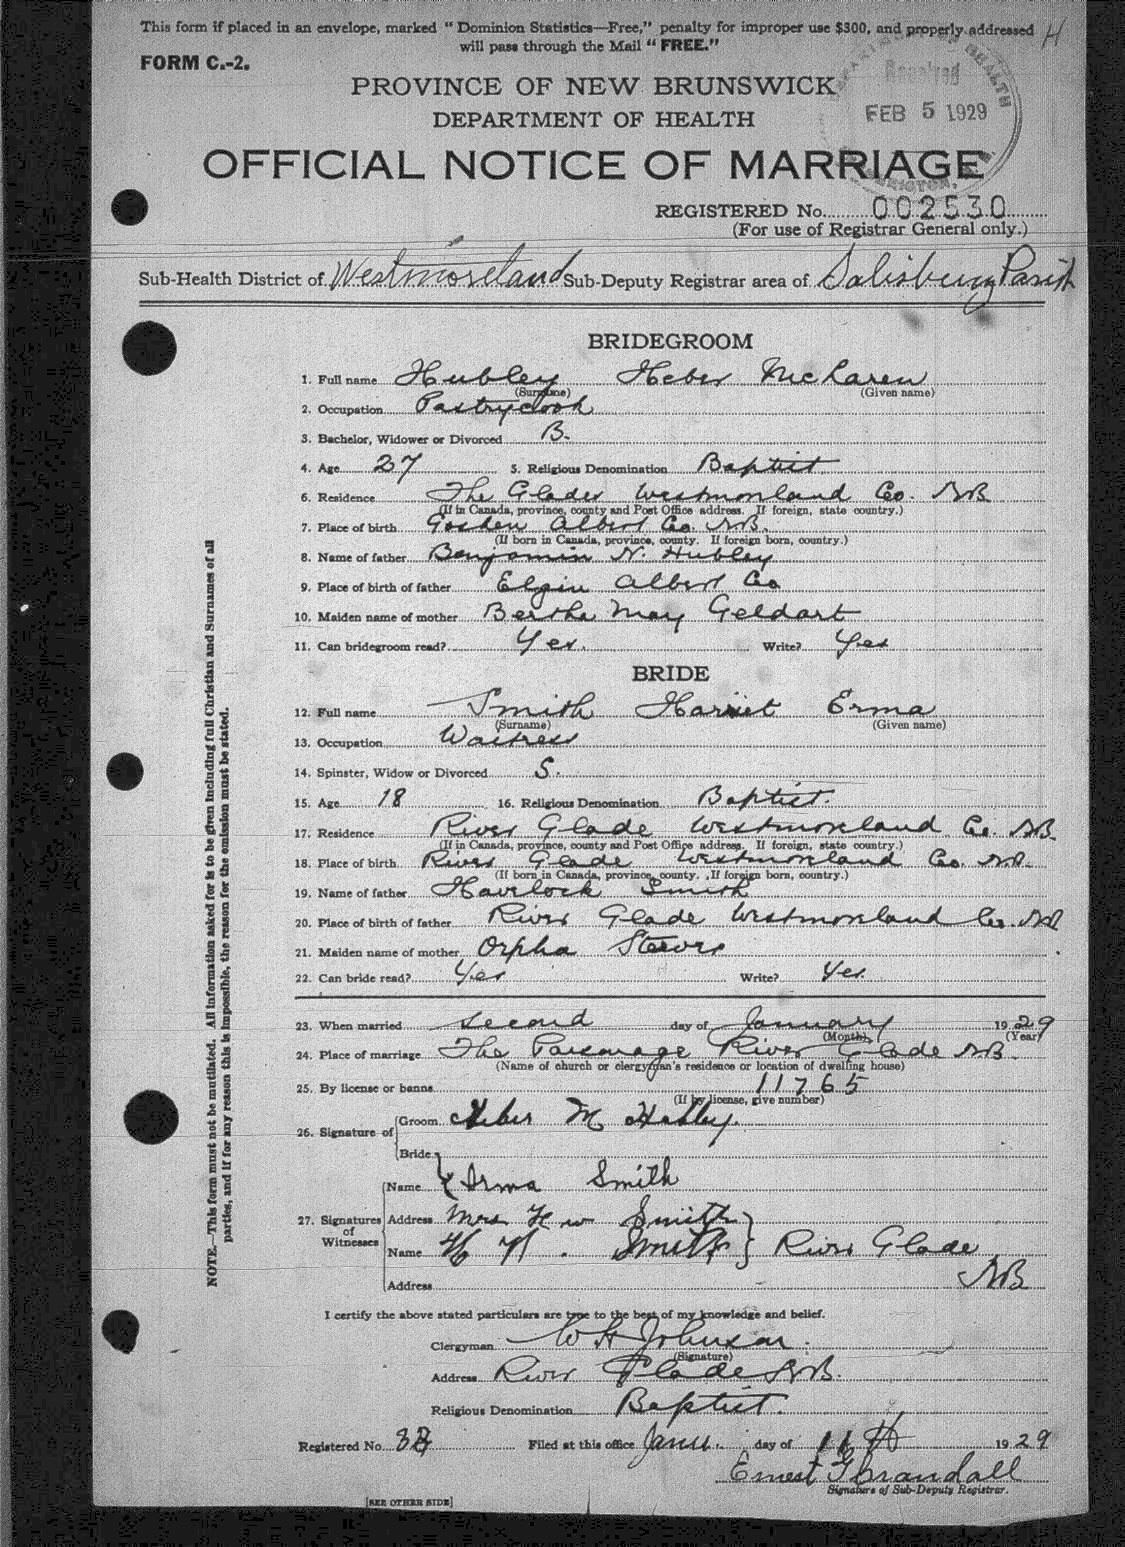 This form if placed in an envelope, marked "Dominion Statistics—Free," penalty for improper use $300, and properly addressed H
will pass through the Mail "FREE."
FORM C.-2.
PROVINCE OF NEW BRUNSWICK
DEPARTMENT OF HEALTH
OFFICIAL NOTICE OF MARRIAGE
HEALTH
Received
FEB 5 1929
REGISTERED No. 002530
(For use of Registrar General only.)
Sub-Health District of Westmoreland Sub-Deputy Registrar area of Salisbury Parish
BRIDEGROOM
1. Full name Hubley Heber McLaren
(Surname) (Given name)
2. Occupation Pastrycook
3. Bachelor, Widower or Divorced B.
4. Age 27 5. Religious Denomination Baptist
6. Residence The Glades Westmorland Co. NB
(If in Canada, province, county and Post Office address. If foreign, state country.)
7. Place of birth Goshen Albert Co. NB.
(If born in Canada, province, county. If foreign born, country.)
8. Name of father Benjamin N. Hubley
9. Place of birth of father Elgin Albert Co
10. Maiden name of mother Bertha May Geldart
11. Can bridegroom read? Yes. Write? Yes
BRIDE
12. Full name Smith Harriet Erma
(Surname) (Given name)
13. Occupation Waitress
14. Spinster, Widow or Divorced S.
15. Age 18 16. Religious Denomination Baptist.
17. Residence River Glade Westmorland Co. NB.
(If in Canada, province, county and Post Office address. If foreign, state country.)
18. Place of birth River Glade Westmorland Co. NB.
(If born in Canada, province, county. If foreign born, country.)
19. Name of father Havelock Smith
20. Place of birth of father River Glade Westmorland Co. NB
21. Maiden name of mother Orpha Steeves
22. Can bride read? Yes Write? Yes
23. When married second day of January 1929
(Month) (Year)
24. Place of marriage The Parsonage River Glade NB.
(Name of church or clergyman's residence or location of dwelling house)
25. By license or banns 11765
(If by license, give number)
26. Signature of
Groom Heber M Hubley.
Bride
27. Signatures of Witnesses
Name Irma Smith
Address Mrs H W Smith
Name Smith } River Glade
NB
Address
I certify the above stated particulars are true to the best of my knowledge and belief.
Clergyman W H Johnson.
(Signature)
Address River Glade NB.
Religious Denomination Baptist.
Registered No. Filed at this office Janu. day of 11th 1929
Ernest G Crandall
Signature of Sub-Deputy Registrar.
[SEE OTHER SIDE]
NOTE.—This form must not be mutilated. All information asked for is to be given including full Christian and Surnames of all
parties, and if for any reason this is impossible, the reason for the omission must be stated.